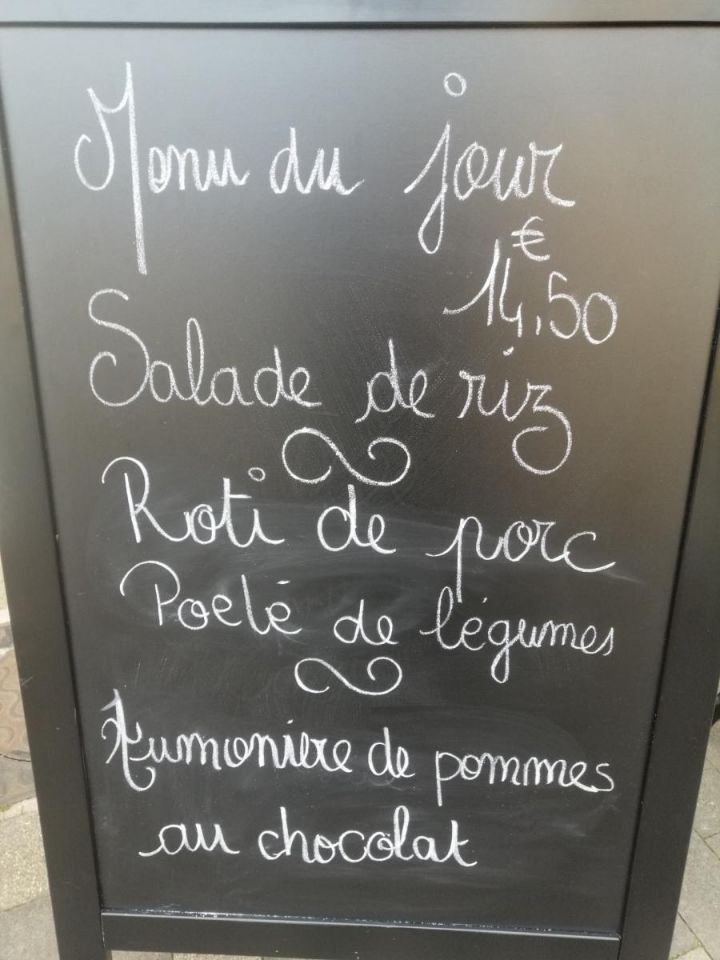 Menu du jour
€
14,50
Salade de riz
Roti de porc
Poelé de légumes
Aumonière de pommes
au chocolat